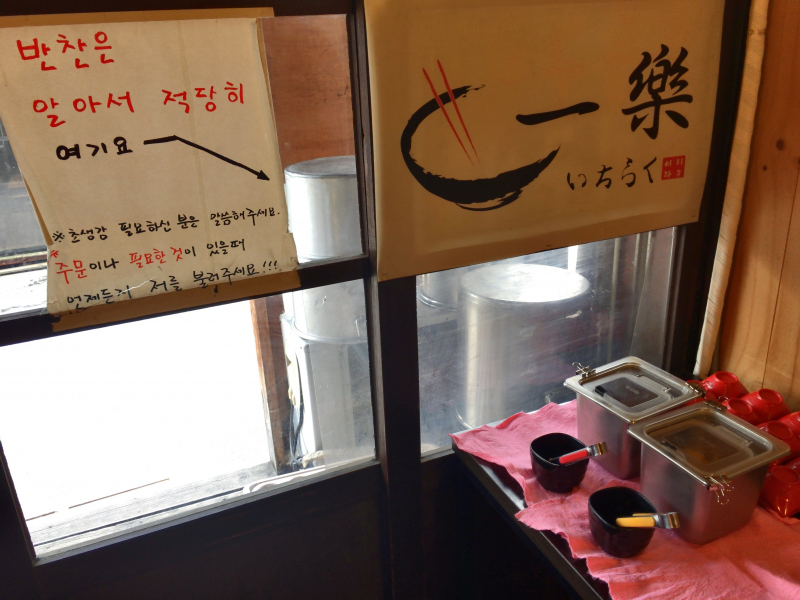 반찬은
알아서 적당히
여기요
※ 초생강 필요하신 분은 말씀해주세요.
* 주문이나 필요한것이 있을때
언제든지 저를 불러주세요!!!
一樂
いちらく